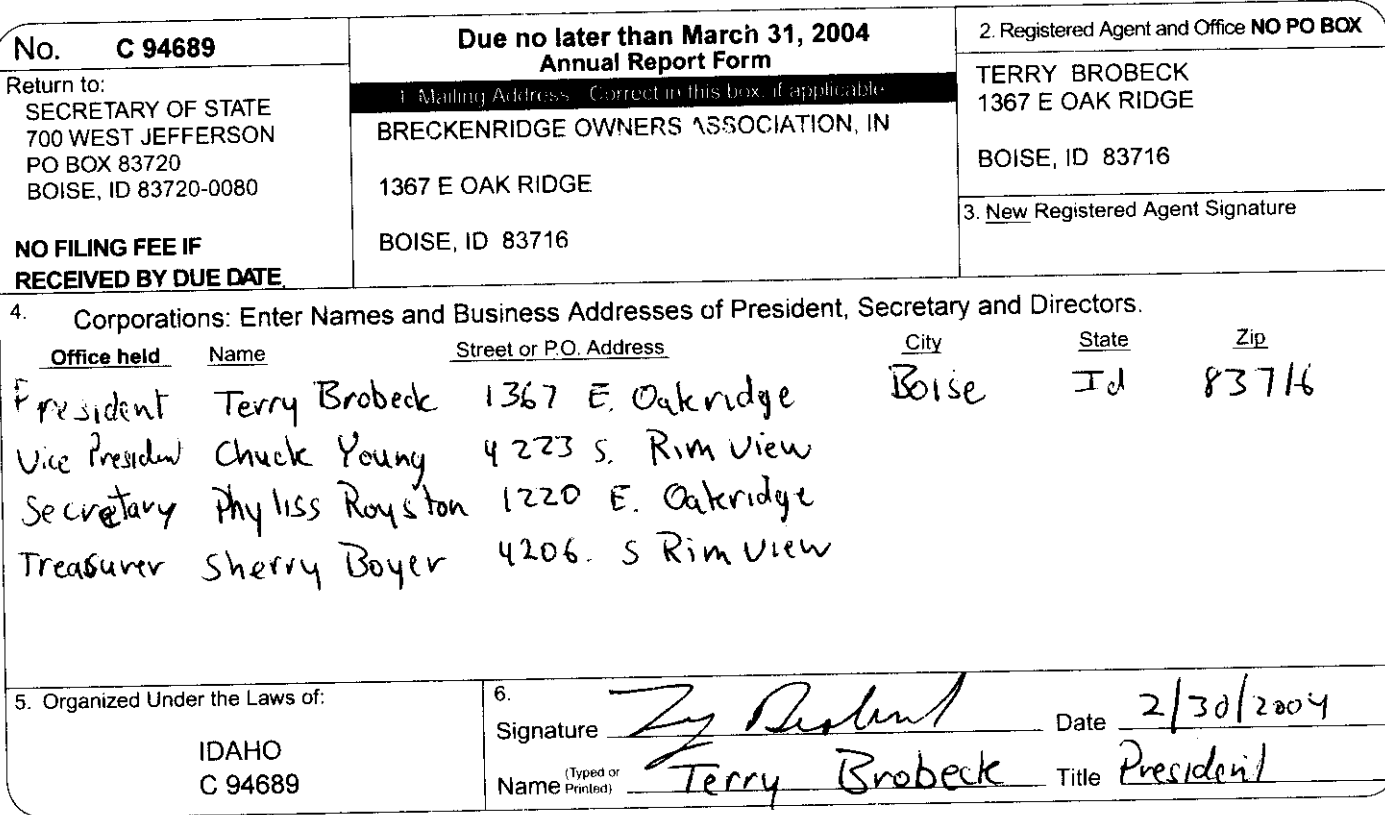 No. C 94689
Return to:
SECRETARY OF STATE
700 WEST JEFFERSON
PO BOX 83720
BOISE, ID 83720-0080
NO FILING FEE IF
RECEIVED BY DUE DATE
Due no later than March 31, 2004
Annual Report Form
1. Mailing Address. Correct in this box, if applicable
BRECKENRIDGE OWNERS ASSOCIATION, IN
1367 E OAK RIDGE
BOISE, ID 83716
2. Registered Agent and Office NO PO BOX
TERRY BROBECK
1367 E OAK RIDGE
BOISE, ID 83716
3. New Registered Agent Signature
4. Corporations: Enter Names and Business Addresses of President, Secretary and Directors.
Office held Name Street or P.O. Address City State Zip
President Terry Brobeck 1367 E. Oakridge Boise Id 83716
Vice President Chuck Young 4223 S. Rim View
Secretary Phyliss Royston 1220 E. Oakridge
Treasurer Sherry Boyer 4206. S Rim View
5. Organized Under the Laws of:
IDAHO
C 94689
6.
Signature Date 2/30/2004
Name (Typed or Printed) Terry Brobeck Title President